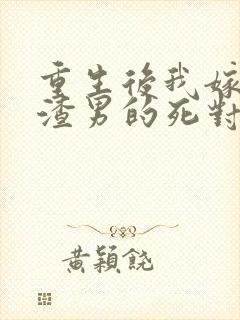 重生後我嫁
渣男的死對
黃穎饒